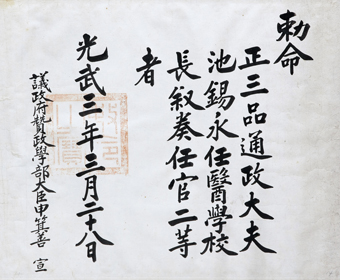 勅命
正三品通政大夫
池錫永任醫學校
長叙奏任官二等
者
光武三年三月二十八日
議政府贊政學部大臣申箕善 宣